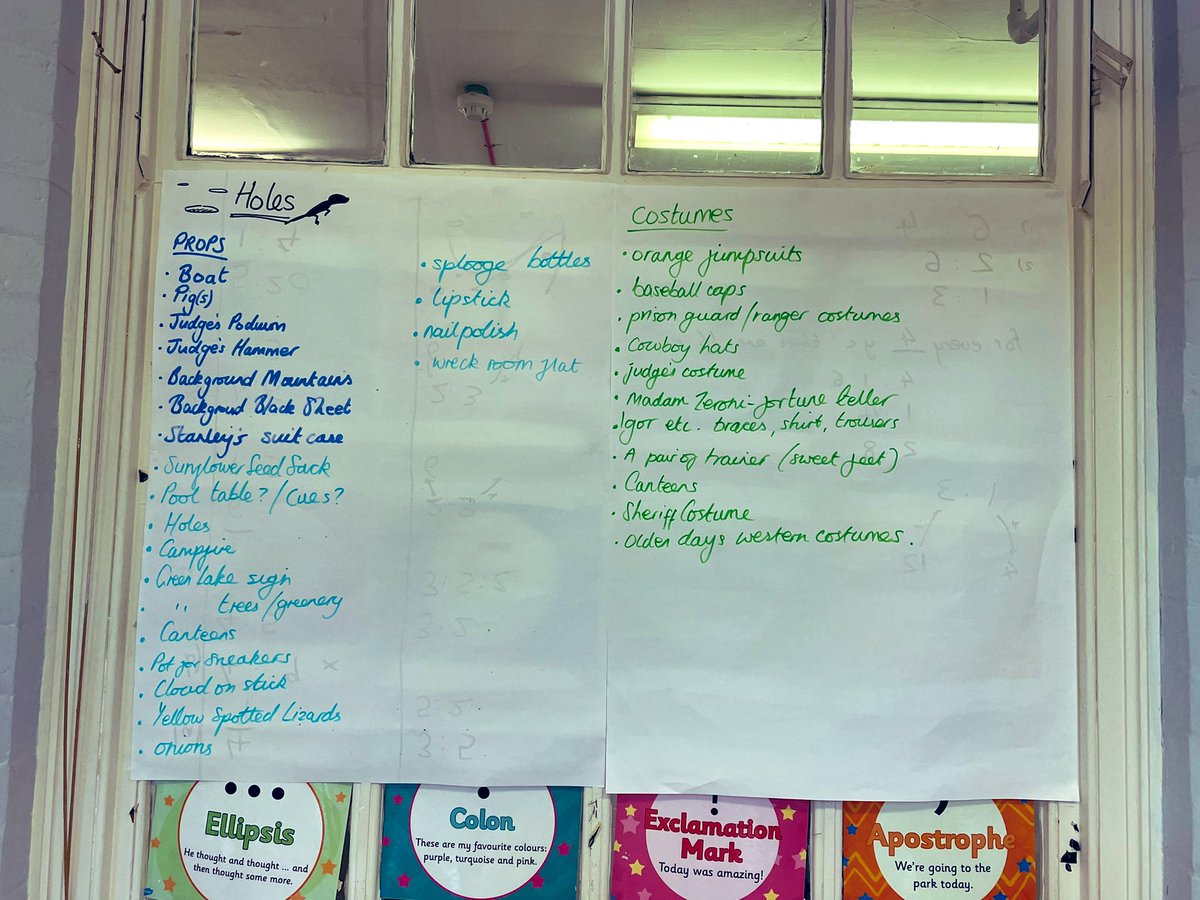 Holes
PROPS
• Boat
• Pig(s)
• Judge's Podium
• Judge's Hammer
• Background Mountains
• Backgroud Black Sheet
• Stanley's suitcase
• Sunflower Seed Sack
• Pool table? / Cues?
• Holes
• Campfire
• Green Lake sign
• " trees/greenery
• Canteens
• Pot for sneakers
• Cloud on stick
• Yellow Spotted Lizards
• onions
• splooge bottles
• lipstick
• nail polish
• wreck room flat
Costumes
• orange jumpsuits
• baseball caps
• prison guard/ranger costumes
• Cowboy hats
• judge's costume
• Madam Zeroni - fortune teller
• Igor etc. braces, shirt, trousers
• A pair of trainer (sweet feet)
• Canteens
• Sheriff Costume
• Olden days western costumes.
Ellipsis
He thought and thought ... and
then thought some more.
:
Colon
These are my favourite colours:
purple, turquoise and pink.
!
Exclamation
Mark
Today was amazing!
Apostrophe
We're going to the
park today.